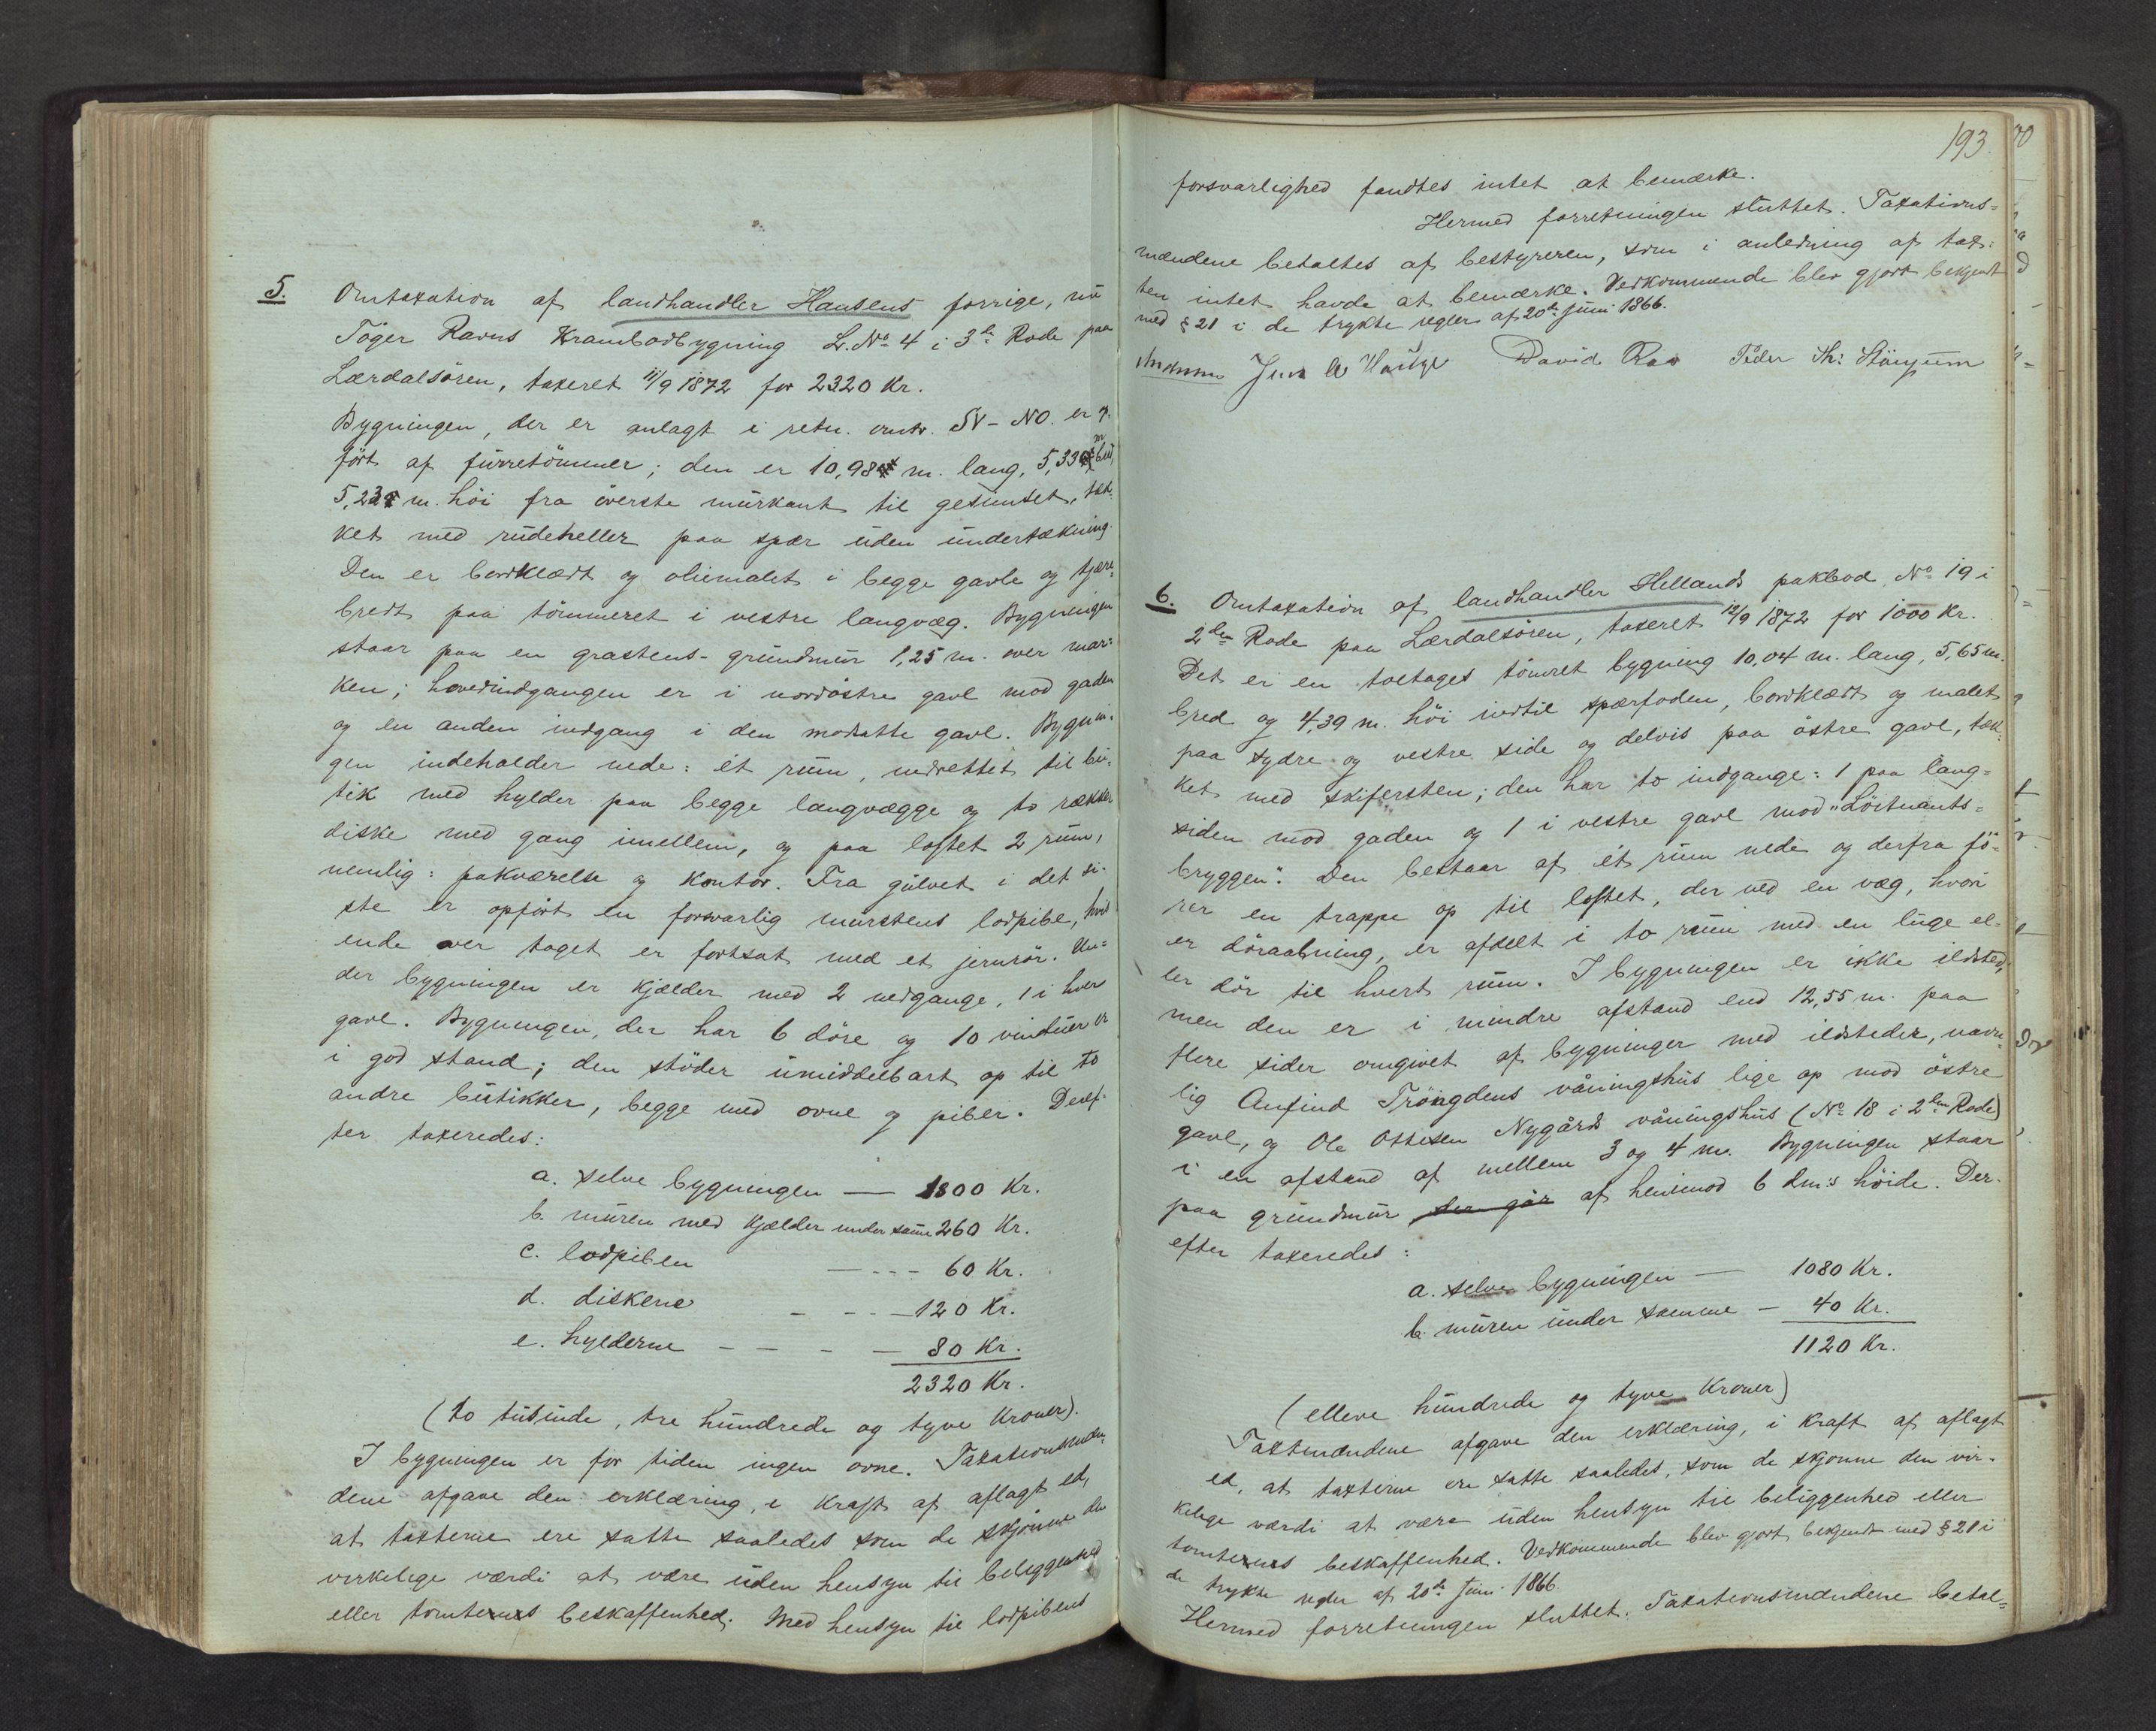 5. Omtaxation af landhandler Hansens forrige, nu
Töger Ravns Krambodbygning L. No 4 i 3de Rode paa
Lærdalsören, taxeret 11/9 1872 for 2320 Kr.
Bygningen, der er anlagt i retn. omtr. SV-NO. er op-
fört af furretömmer; den er 10,98 m. lang, 5,33 m bred,
5,23 m. höi fra överste murkant til gesimset, tæk-
ket med rudeheller paa spær uden undertækning.
Den er bordklædt og oliemalet i begge gavle og tjære-
bredt paa tömmeret i vestre langvæg. Bygningen
staar paa en grastens-grundmur 1,25 m. over mar-
ken; hovedindgangen er i nordöstre gavl mod gaden
og en anden indgang i den modsatte gavl. Bygnin-
gen indeholder nede: ét rum, indrettet til bu-
tik med hylder paa begge langvægge og to rækker
diske med gang imellem, og paa loftet 2 rum,
nemlig: pakværelse og Kontor. Fra gulvet i det si-
ste er opfört en forsvarlig murstens lodpibe, hvis
ende over taget er fortsat med et jernrör. Un-
der bygningen er Kjælder med 2 nedgange, 1 i hver
gavl. Bygningen, der har 6 döre og 10 vinduer er
i god stand; den stöder umiddelbart op til to
andre butikker, begge med ovne og piber. Deref-
ter taxeredes:
a. selve bygningen — 1800 Kr.
b. muren med Kjælder under samme 260 Kr.
c. lodpiben — - - - 60 Kr.
d. diskene - - - 120 Kr.
e. hylderne - - - - 80 Kr.
2320 Kr.
(to tusinde, tre hundrede og tyve Kroner).
I bygningen er for tiden ingen ovne. Taxationsmæn-
dene afgave den erklæring, i Kraft af aflagt ed,
at taxterne ere satte saaledes som de skjönne den
virkelige værdi at være uden hensyn til beliggenhed
eller tomternes beskaffenhed. Med hensyn til lodpibens
193.
forsvarlighed fandtes intet at bemærke.
Hermed forretningen sluttet. Taxations-
mændene betaltes af bestyreren, som i anledning af tax-
ten intet havde at bemærke. Vedkommende blev gjort bekjendt
med § 21 i de trykte regler af 20de Juni 1866.
Jens A Hauge David Rav Peder Th: Stönjum
6. Omtaxation af landhandler Hellands pakbod No 19 i
2den Rode paa Lærdalsören, taxeret 12/9 1872 for 1000 Kr.
Det er en toetages tömret bygning 10,04 m. lang, 5,65 m.
bred og 4,39 m. höi indtil spærfoden, bordklædt og malet
paa sydre og vestre side og delvis paa östre gavl, tæk-
ket med skifersten; den har to indgange: 1 paa lang-
siden mod gaden og 1 i vestre gavl mod "Löitnants-
bryggen". Den bestaar af ét rum nede og derfra fö-
rer en trappe op til loftet, der ved en væg, hvori
er döraabning, er afdelt i to rum med en luge el-
ler dör til hvert rum. I bygningen er ikke ildsted,
men den er i mindre afstand end 12,55 m. paa
flere sider omgivet af bygninger med ildsteder, navn-
lig Anfind Tröngdens våningshus lige op mod östre
gavl, og Ole Ottesen Nygårds våningshus (No 18 i 2den Rode)
i en afstand af mellem 3 og 4 m. Bygningen staar
paa grundmur der går af henimod 6 dm:s höide. Der-
efter taxeredes:
a. selve bygningen — 1080 Kr.
b. muren under samme — 40 Kr.
1120 Kr.
(elleve hundrede og tyve Kroner)
Taxtmændene afgave den erklæring, i Kraft af aflagt
ed, at taxterne ere satte saaledes, som de skjönne den vir-
kelige værdi at være uden hensyn til beliggenhed eller
tomternes beskaffenhed. Vedkommende blev gjort bekjendt med § 21 i
de trykte regler af 20de Juni 1866.
Hermed forretningen sluttet. Taxationsmændene betal-